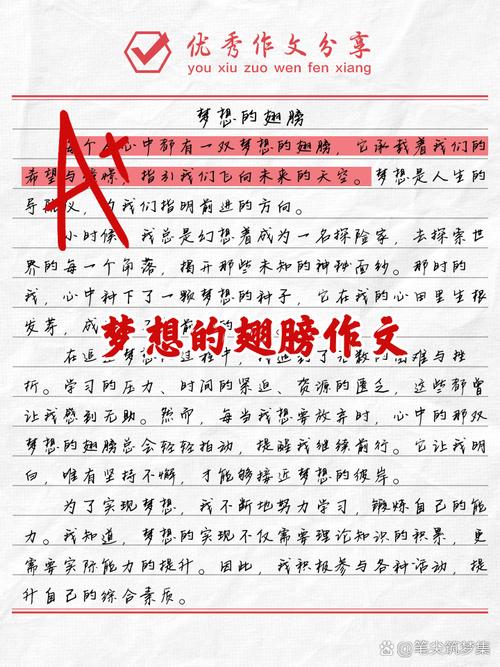 优秀作文分享
you xiu zuo wen fen xiang
A+
梦想的翅膀
每个人心中都有一双梦想的翅膀，它承载着我们的
希望与，指引我们飞向未来的天空。梦想是人生的
导，为我们指明前进的方向。
小时候，我总是幻想着成为一名探险家，去探索世
界的每一个角落，揭开那些未知的神秘面纱。那时的
我，心中种下了一颗梦想的种子，它在我的心田里生根
发芽，成
梦想的翅膀作文
在追过程中，我遇到了无数的困难与挫
折。学习的压力、时间的紧迫、资源的匮乏，这些都曾
让我感到无助。然而，每当我想要放弃时，心中的那双
梦想的翅膀总会轻轻拍动，提醒我继续前行。它让我明
白，唯有坚持不懈，才能够接近梦想的彼岸。
为了实现梦想，我不断地努力学习，锻炼自己的能
力。我知道，梦想的实现不仅需要理论知识的积累，更
需要实际能力的提升。因此，我积极参与各种活动，提
升自己的综合素质。
@笔尖筑梦集